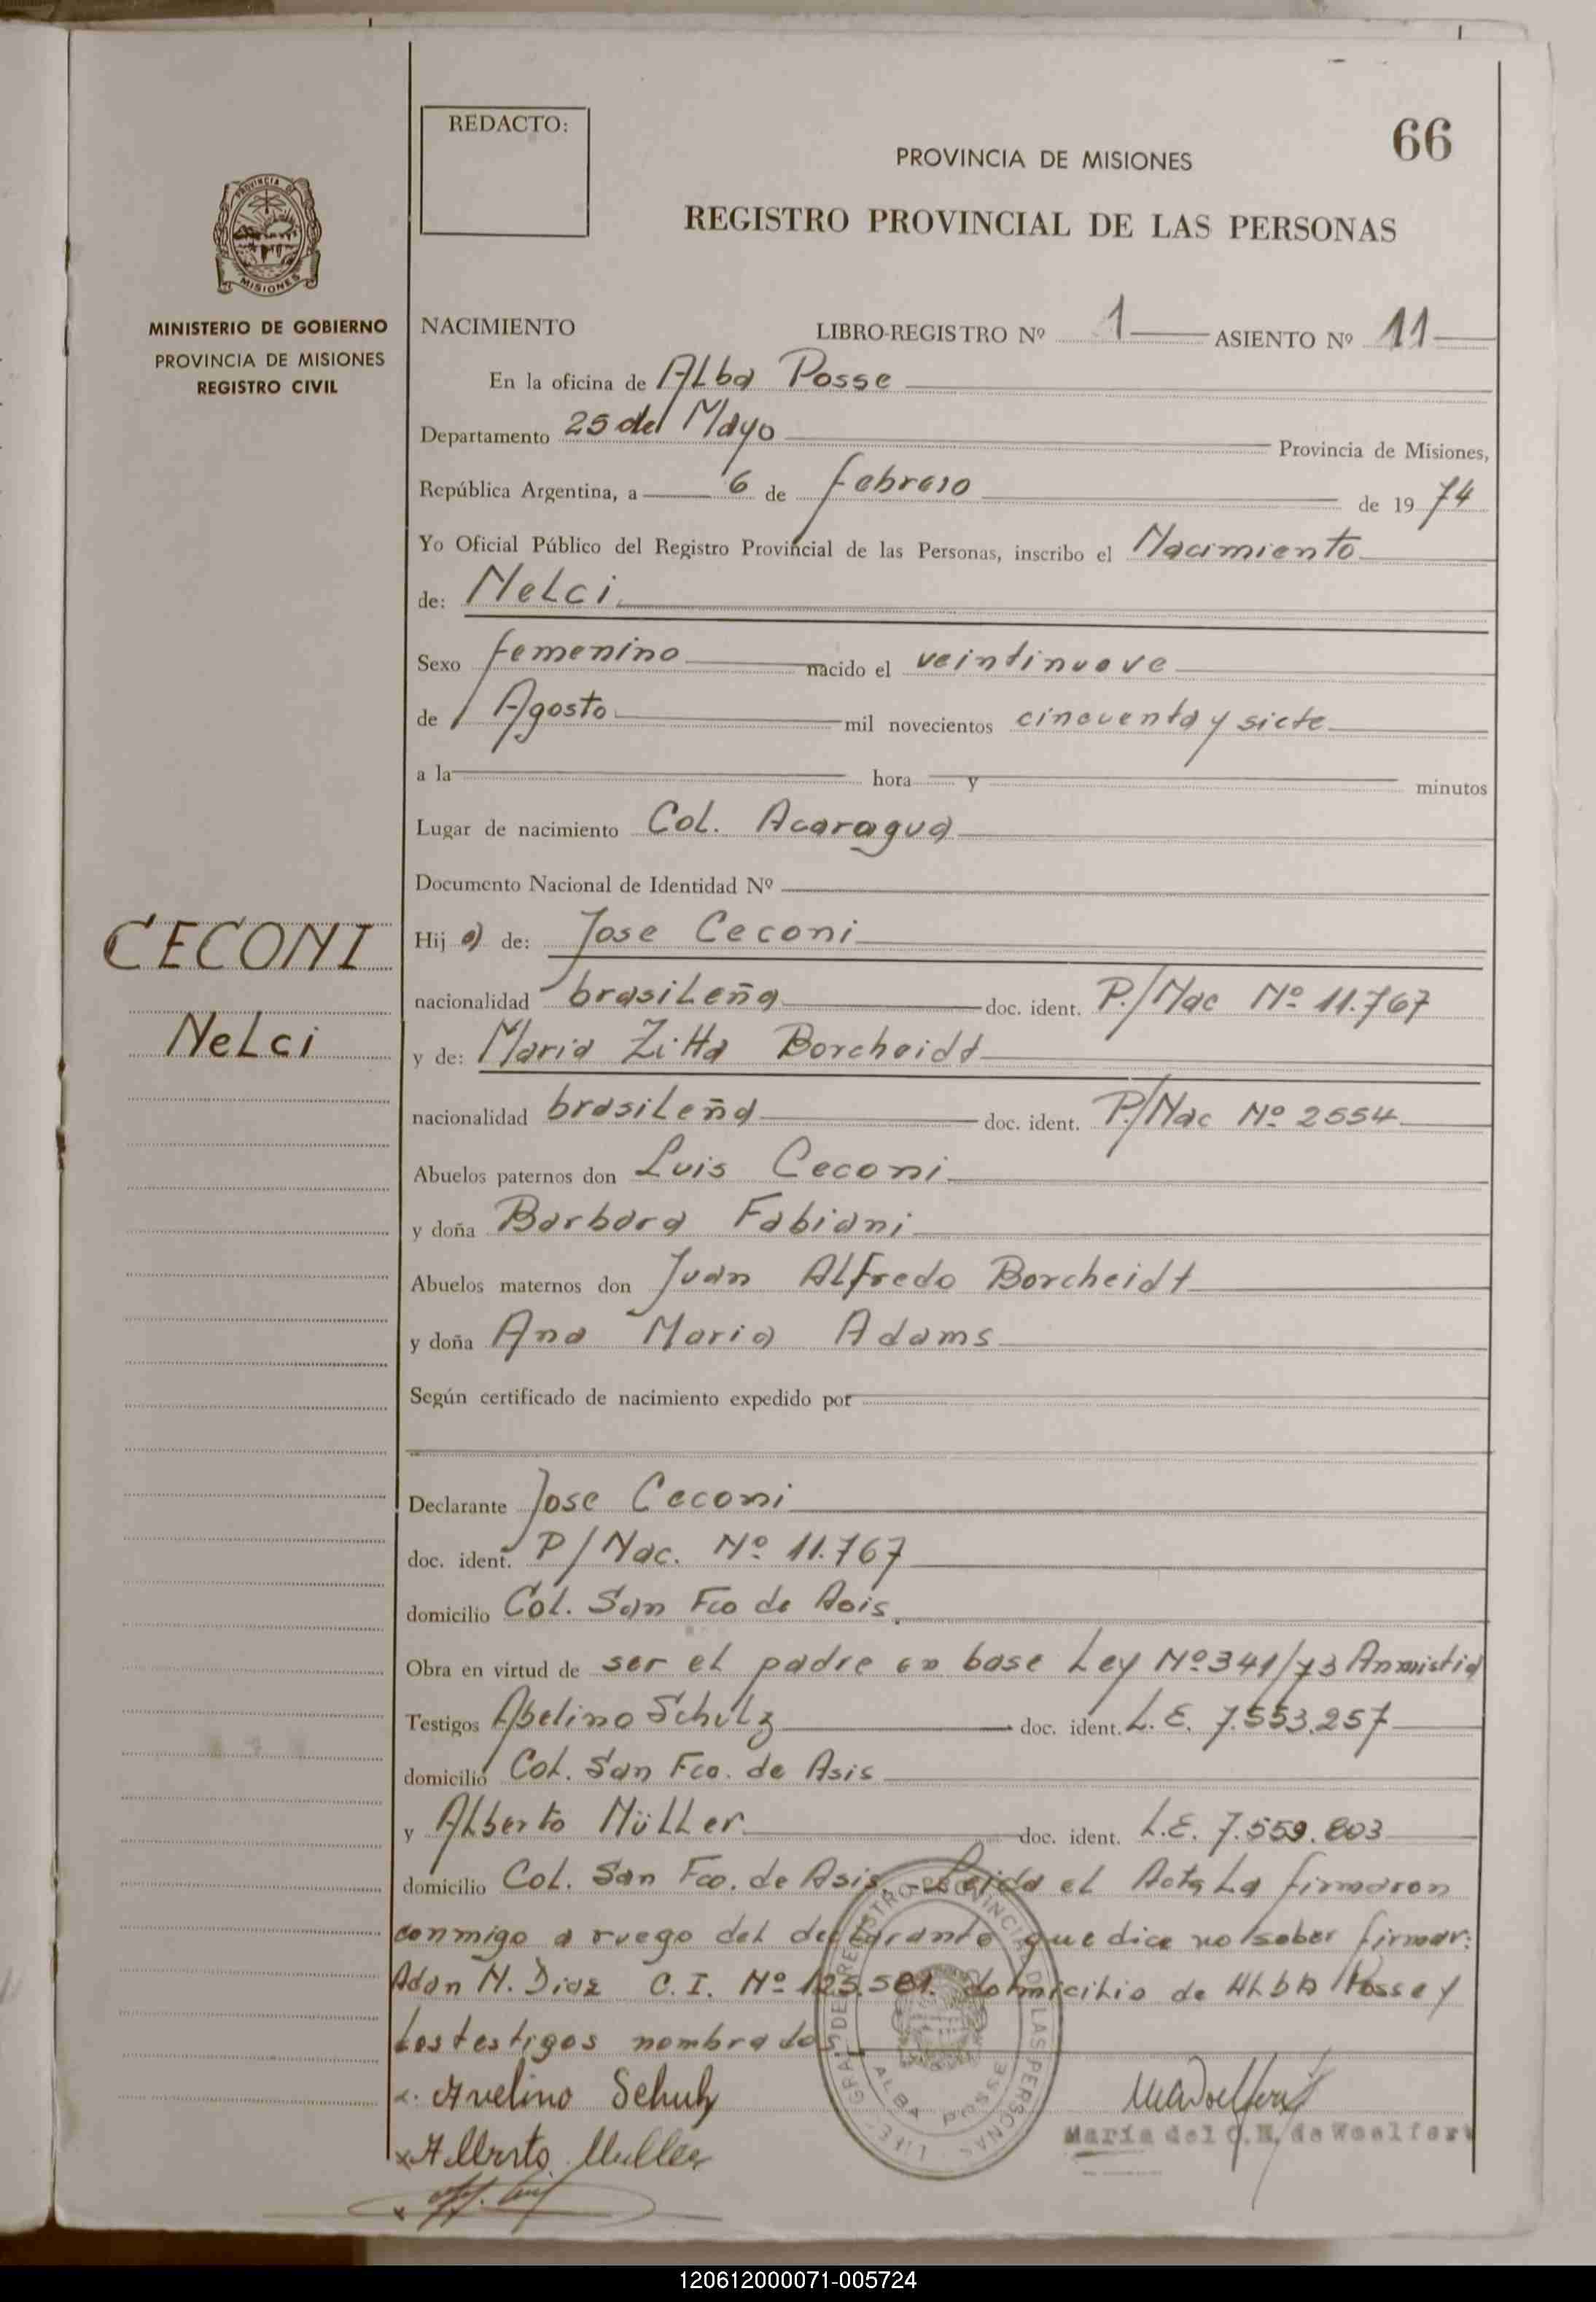 REDACTO:
66
PROVINCIA DE MISIONES
REGISTRO PROVINCIAL DE LAS PERSONAS
PROVINCIA DE
MISIONES
MINISTERIO DE GOBIERNO
PROVINCIA DE MISIONES
REGISTRO CIVIL
NACIMIENTO LIBRO-REGISTRO Nº 1 ASIENTO Nº 11
En la oficina de Alba Posse
Departamento 25 de Mayo Provincia de Misiones,
República Argentina, a 6 de febrero de 1974
Yo Oficial Público del Registro Provincial de las Personas, inscribo el Nacimiento
de: Nelci
Sexo femenino nacido el veintinueve
de Agosto mil novecientos cincuenta y siete
a la hora y minutos
Lugar de nacimiento Col. Acaragua
Documento Nacional de Identidad Nº
CECONI
Nelci
Hij a de: Jose Ceconi
nacionalidad brasileña doc. ident. P./Nac Nº 11.767
y de: Maria Zitta Borcheidt
nacionalidad brasileña doc. ident. P./Nac Nº 2554
Abuelos paternos don Luis Ceconi
y doña Barbara Fabiani
Abuelos maternos don Juan Alfredo Borcheidt
y doña Ana Maria Adams
Según certificado de nacimiento expedido por
Declarante Jose Ceconi
doc. ident. P/Nac. Nº 11.767
domicilio Col. San Fco de Asis.
Obra en virtud de ser el padre en base Ley Nº 341/73 Anmistia
Testigos Abelino Schulz doc. ident. L.E. 7.553.257
domicilio Col. San Fco. de Asis
y Alberto Müller doc. ident. L.E. 7.559.803
domicilio Col. San Fco. de Asis. - Leida el Acta La firmaron
conmigo a ruego del declarante que dice no saber firmar:
Adan N. Diaz C.I. Nº 125.581. domicilio de Alba Posse y
los testigos nombrados
REGISTRO PROVINCIAL DE LAS PERSONAS
ALBA POSSE
Avelino Schulz
x Alberto Muller
María del C.N. de Woelfert
120612000071-005724